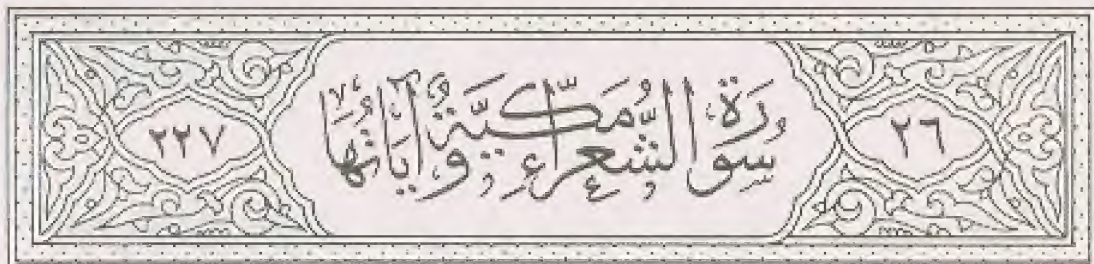 ٢٦
سُورَةُ الشُّعَرَاءِ مَكِّيَّةٌ وَآيَاتُهَا
٢٢٧